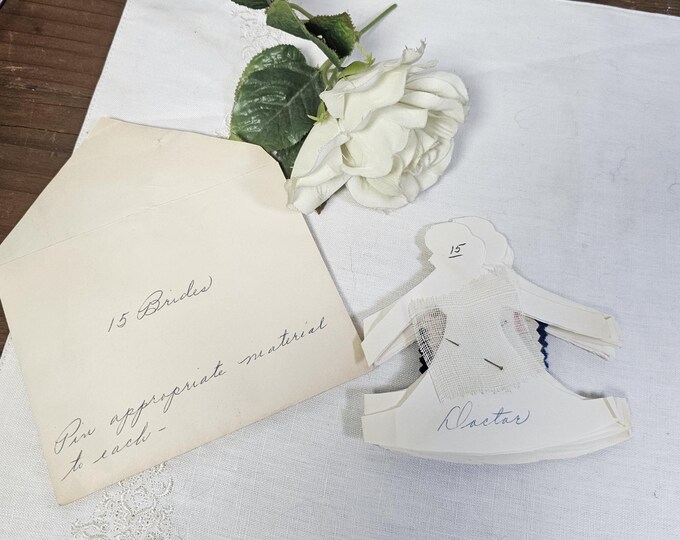 15 Brides
Pin appropriate material
to each -
15
Doctor